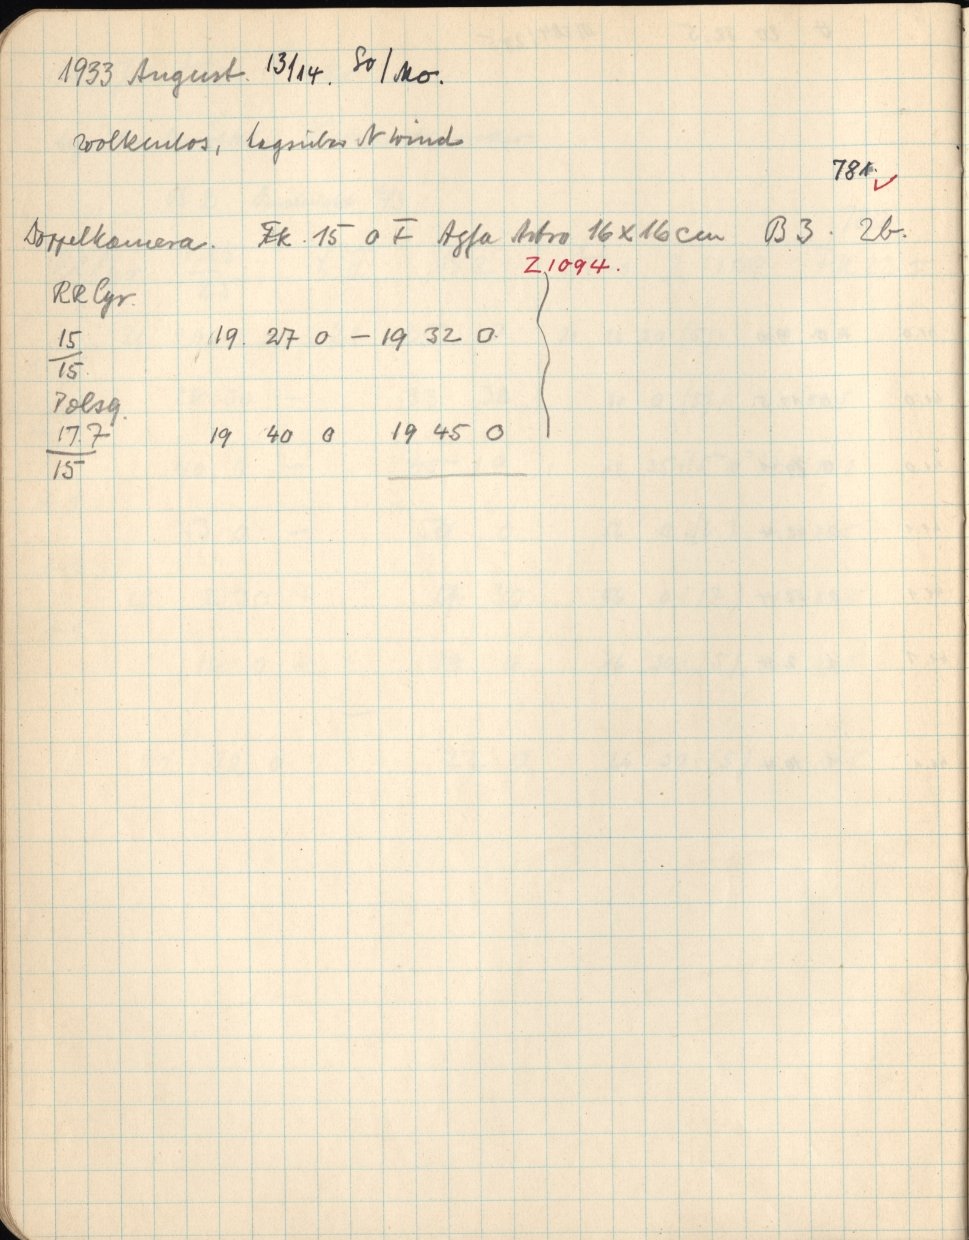 1933 August. 13/14. So/Mo.
wolkenlos, tagsüber N Wind
781
Doppelkamera. Zk. 15 0 F Agfa Astro 16x16cm B3. 2b.
Z1094.
RR Lyr.
15 19 27 0 – 19 32 0
15.
Polsq.
17.7 19 40 0 19 45 0
15